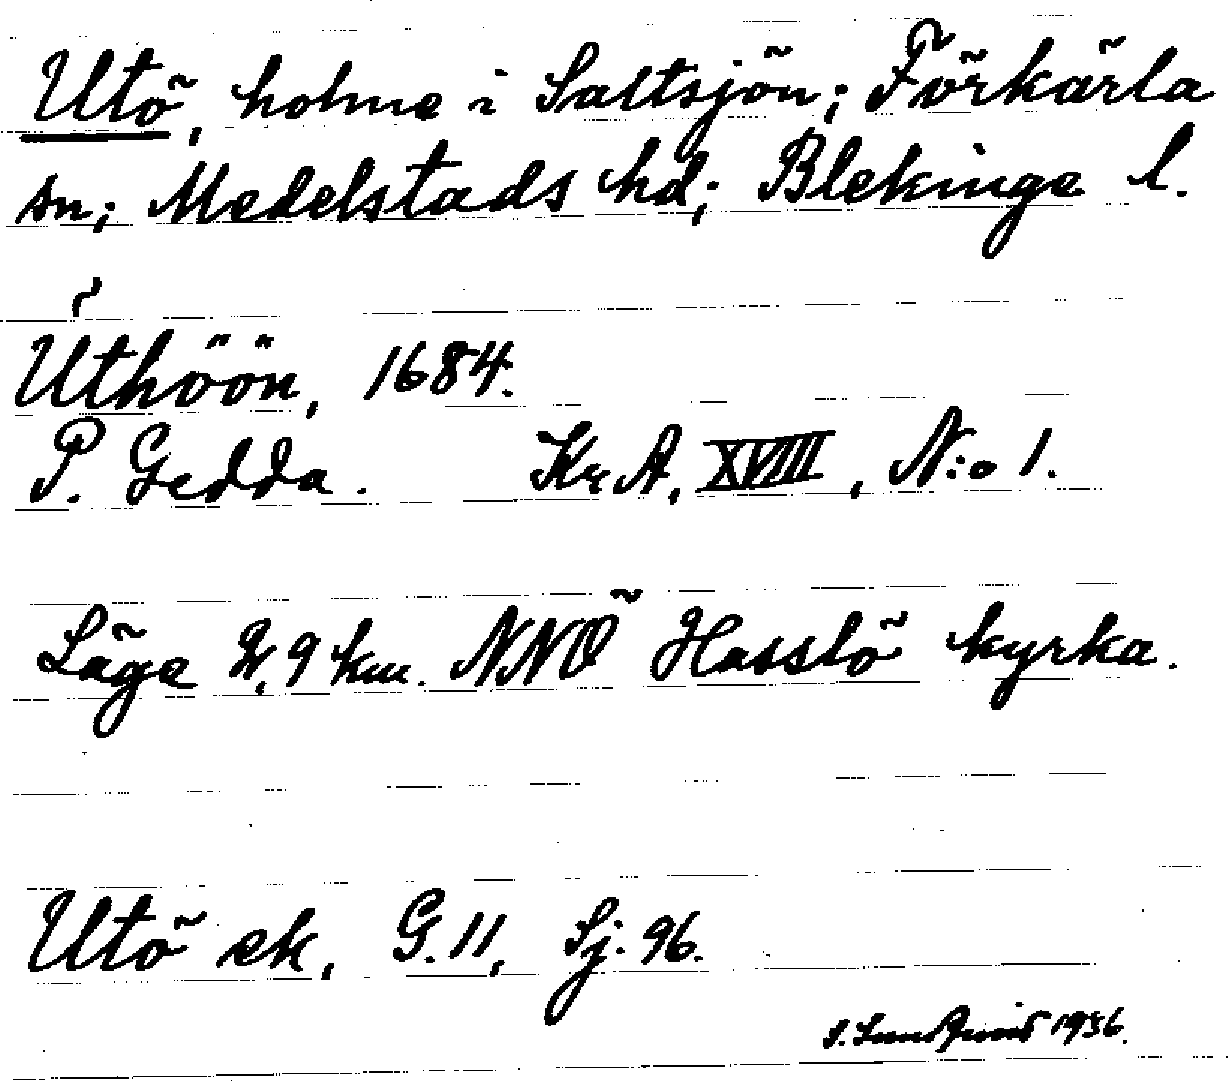 Utö, holme i Saltsjön; Förkärla
sn; Medelstads hd; Blekinge l.
Uthöön, 1684.
P. Gedda. KrA, XVIII, N:o 1.
Läge 2,9 km. NNÖ Hasslö kyrka.
Utö ek, G. 11, Sj. 96.
1936.